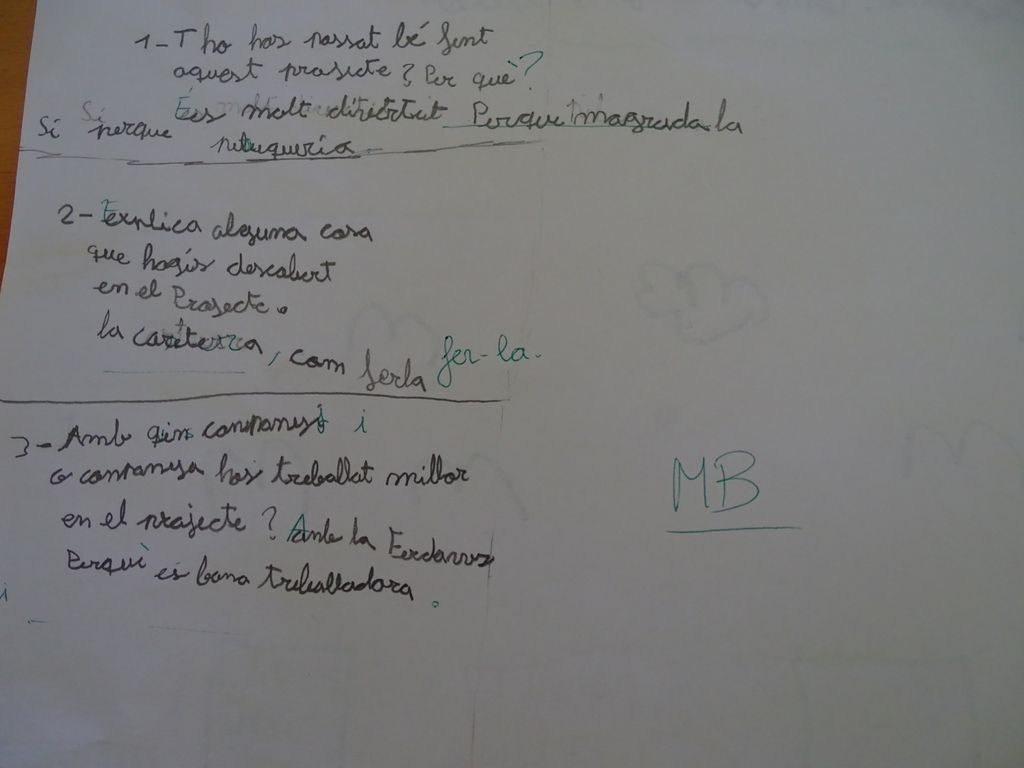 1-T ho has passat bé fent
aquest projecte? Per què?
És molt divertit Perque Magrada la
Si perque perruqueria
2-Explica alguna cosa
que hagis descobert
en el Projecte.
la caretera, com ferla fer-la.
3-Amb quin company i
o companya has treballat millor
en el projecte? Amb la
Perquè és bona treballadora.
MB